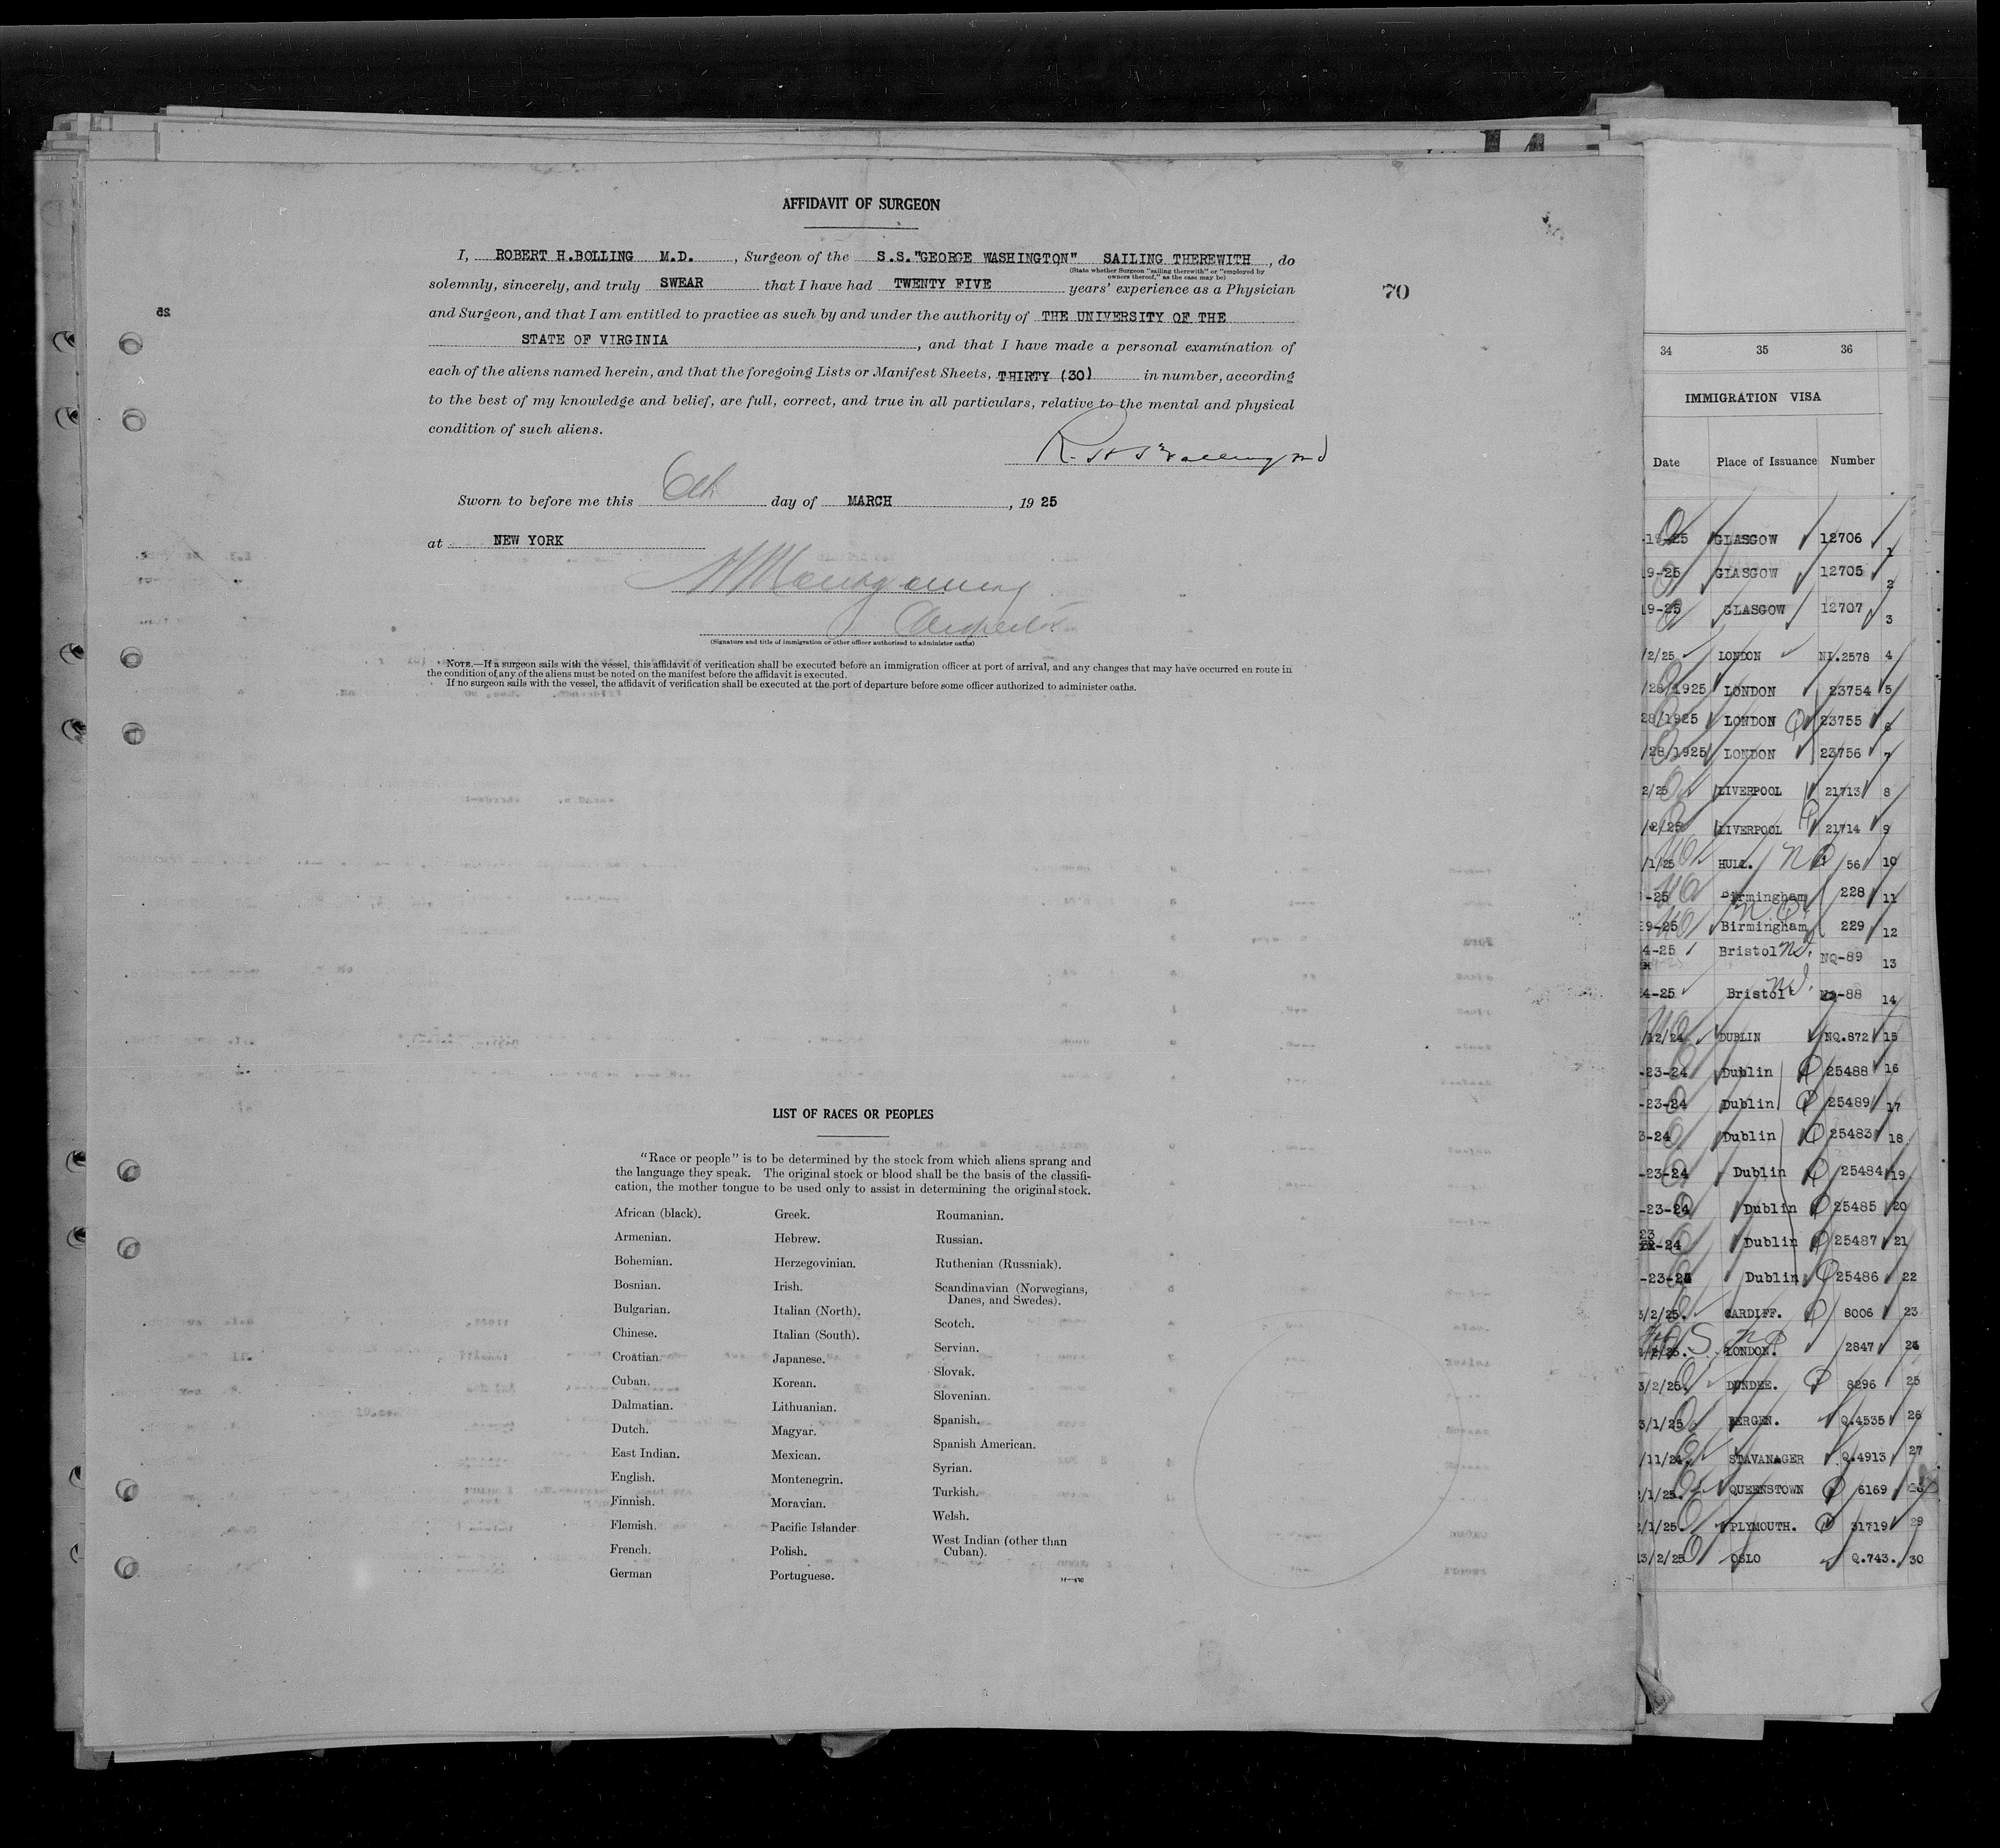 AFFIDAVIT OF SURGEON
I, ROBERT H.BOLLING M.D. , Surgeon of the S.S."GEORGE WASHINGTON" SAILING THEREWITH , do
(State whether Surgeon "sailing therewith" or "employed by
owners thereof," as the case may be)
solemnly, sincerely, and truly SWEAR that I have had TWENTY FIVE years' experience as a Physician
70
and Surgeon, and that I am entitled to practice as such by and under the authority of THE UNIVERSITY OF THE
STATE OF VIRGINIA , and that I have made a personal examination of
each of the aliens named herein, and that the foregoing Lists or Manifest Sheets, THIRTY (30) in number, according
to the best of my knowledge and belief, are full, correct, and true in all particulars, relative to the mental and physical
condition of such aliens.
R. H. Bolling MD
Sworn to before me this 6th day of MARCH , 19 25
at NEW YORK
Montgomery
Inspector
(Signature and title of immigration or other officer authorized to administer oaths)
NOTE.—If a surgeon sails with the vessel, this affidavit of verification shall be executed before an immigration officer at port of arrival, and any changes that may have occurred en route in
the condition of any of the aliens must be noted on the manifest before the affidavit is executed.
If no surgeon sails with the vessel, the affidavit of verification shall be executed at the port of departure before some officer authorized to administer oaths.
LIST OF RACES OR PEOPLES
"Race or people" is to be determined by the stock from which aliens sprang and
the language they speak. The original stock or blood shall be the basis of the classifi-
cation, the mother tongue to be used only to assist in determining the original stock.
African (black).
Armenian.
Bohemian.
Bosnian.
Bulgarian.
Chinese.
Croatian.
Cuban.
Dalmatian.
Dutch.
East Indian.
English.
Finnish.
Flemish.
French.
German
Greek.
Hebrew.
Herzegovinian.
Irish.
Italian (North).
Italian (South).
Japanese.
Korean.
Lithuanian.
Magyar.
Mexican.
Montenegrin.
Moravian.
Pacific Islander
Polish.
Portuguese.
Roumanian.
Russian.
Ruthenian (Russniak).
Scandinavian (Norwegians,
Danes, and Swedes).
Scotch.
Servian.
Slovak.
Slovenian.
Spanish.
Spanish American.
Syrian.
Turkish.
Welsh.
West Indian (other than
Cuban).
34 35 36
IMMIGRATION VISA
Date Place of Issuance Number
-19-25 GLASGOW 12706 1
19-25 GLASGOW 12705 2
19-25 GLASGOW 12707 3
/2/25 LONDON NI.2578 4
/28/1925 LONDON 23754 5
28/1925 LONDON 23755 6
/28/1925 LONDON 23756 7
2/25 LIVERPOOL 21713 8
/2/25 LIVERPOOL 21714 9
/1/25 HULL. 56 10
-25 Birmingham 228 11
9-25 Birmingham 229 12
4-25 Bristol NQ-89 13
4-25 Bristol NQ-88 14
/12/24 DUBLIN NQ.872 15
-23-24 Dublin 25488 16
-23-24 Dublin 25489 17
3-24 Dublin 25483 18
-23-24 Dublin 25484 19
-23-24 Dublin 25485 20
23
-24 Dublin 25487 21
-23-24 Dublin 25486 22
3/2/25. CARDIFF. 8006 23
2/25. LONDON. 2847 24
3/2/25. DUNDEE. 8296 25
3/1/25 BERGEN. Q.4535 26
/11/24. STAVANAGER Q.4913 27
/1/25. QUEENSTOWN 6169
/1/25. PLYMOUTH. 31719 29
3/2/25 OSLO Q.743. 30